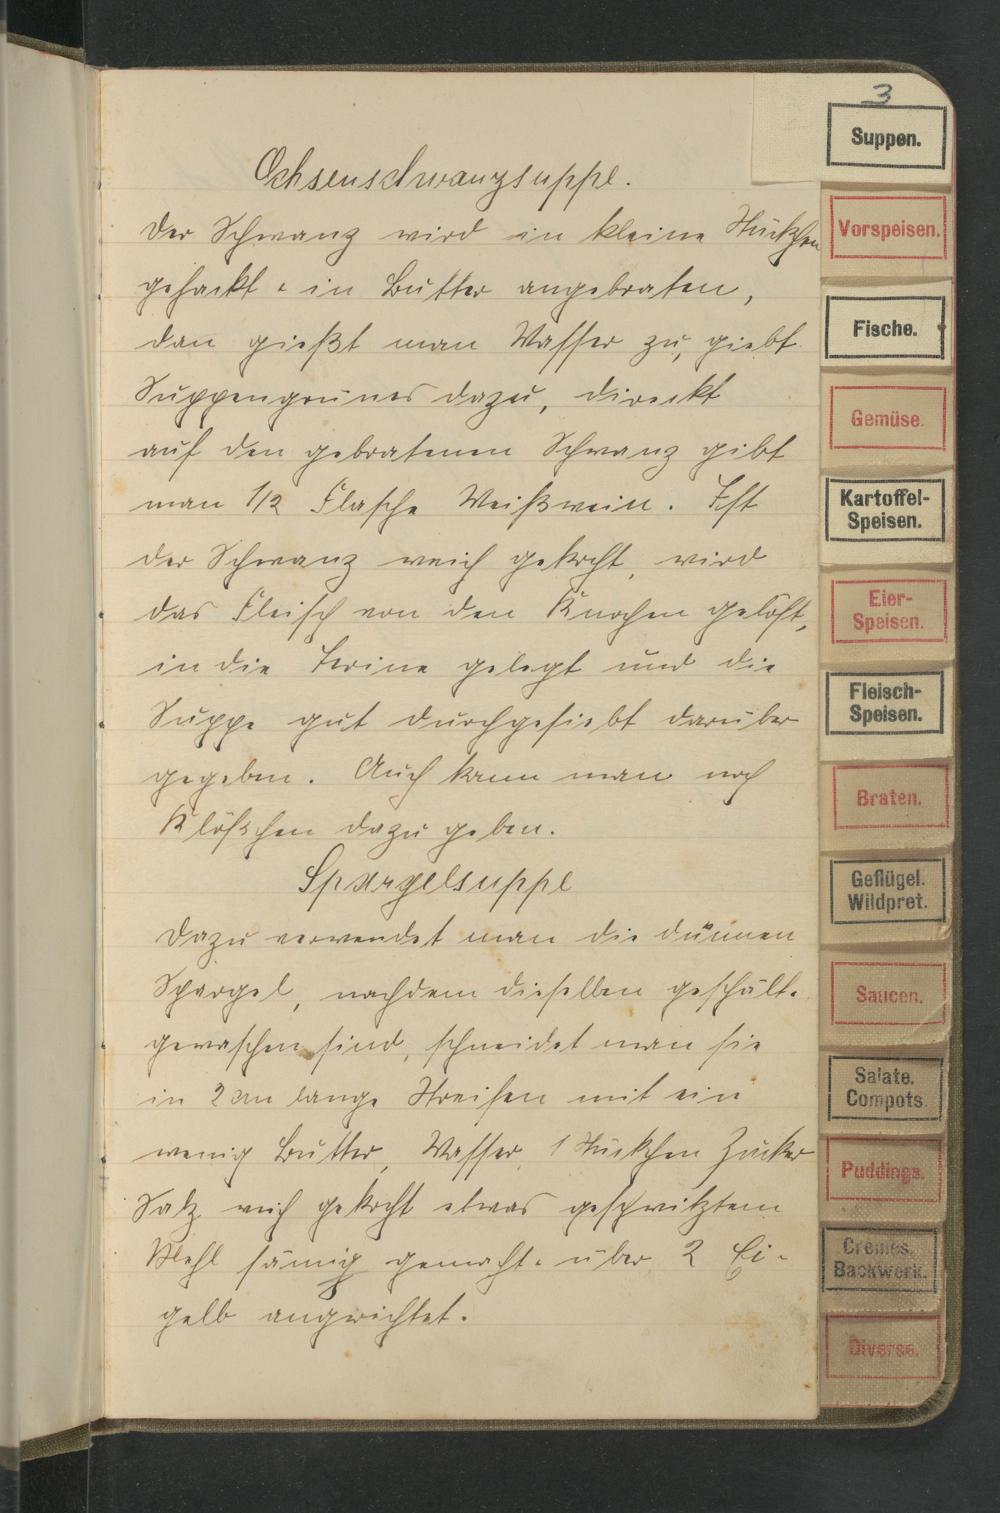 3
Ochsenschwanzsuppe.
Der Schwanz wird in kleine Stückchen
gehackt u. in Butter angebraten,
dan gießt man Wasser zu, giebt
Suppengrünes dazu, direckt
auf den gebratenen Schwanz gibt
man 1/2 Flasche Weißwein. Ist
der Schwanz weich gekocht, wird
das Fleisch von den Knochen gelöst,
in die Terine gelegt und die
Suppe gut durchgesiebt darüber
gegeben. Auch kann man noch
Klößchen dazu geben.
Spargelsuppe
Dazu verwendet man die dünnen
Spargel, nachdem dieselben geschält u.
gewaschen sind, schneidet man sie
in 2 cm lange Streifen mit ein
wenig Butter, Wasser, 1 Stückchen Zucker
Salz weich gekocht etwas geschwitztem
Mehl sämig gemacht u. über 2 Ei-
gelb angerichtet.
Suppen.
Vorspeisen.
Fische.
Gemüse.
Kartoffel-
Speisen.
Eier-
Speisen.
Fleisch-
Speisen.
Braten.
Geflügel.
Wildpret.
Saucen.
Salate.
Compots.
Puddings.
Crèmes.
Backwerk.
Diverse.